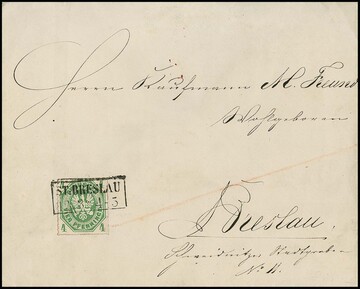 Herrn Kaufmann M. Freund
Wohlgeboren
ST. BRESLAU
3
VIER PFENNINGE
4 4
Breslau.
Schweidnitzer Stadtgraben
No 11.